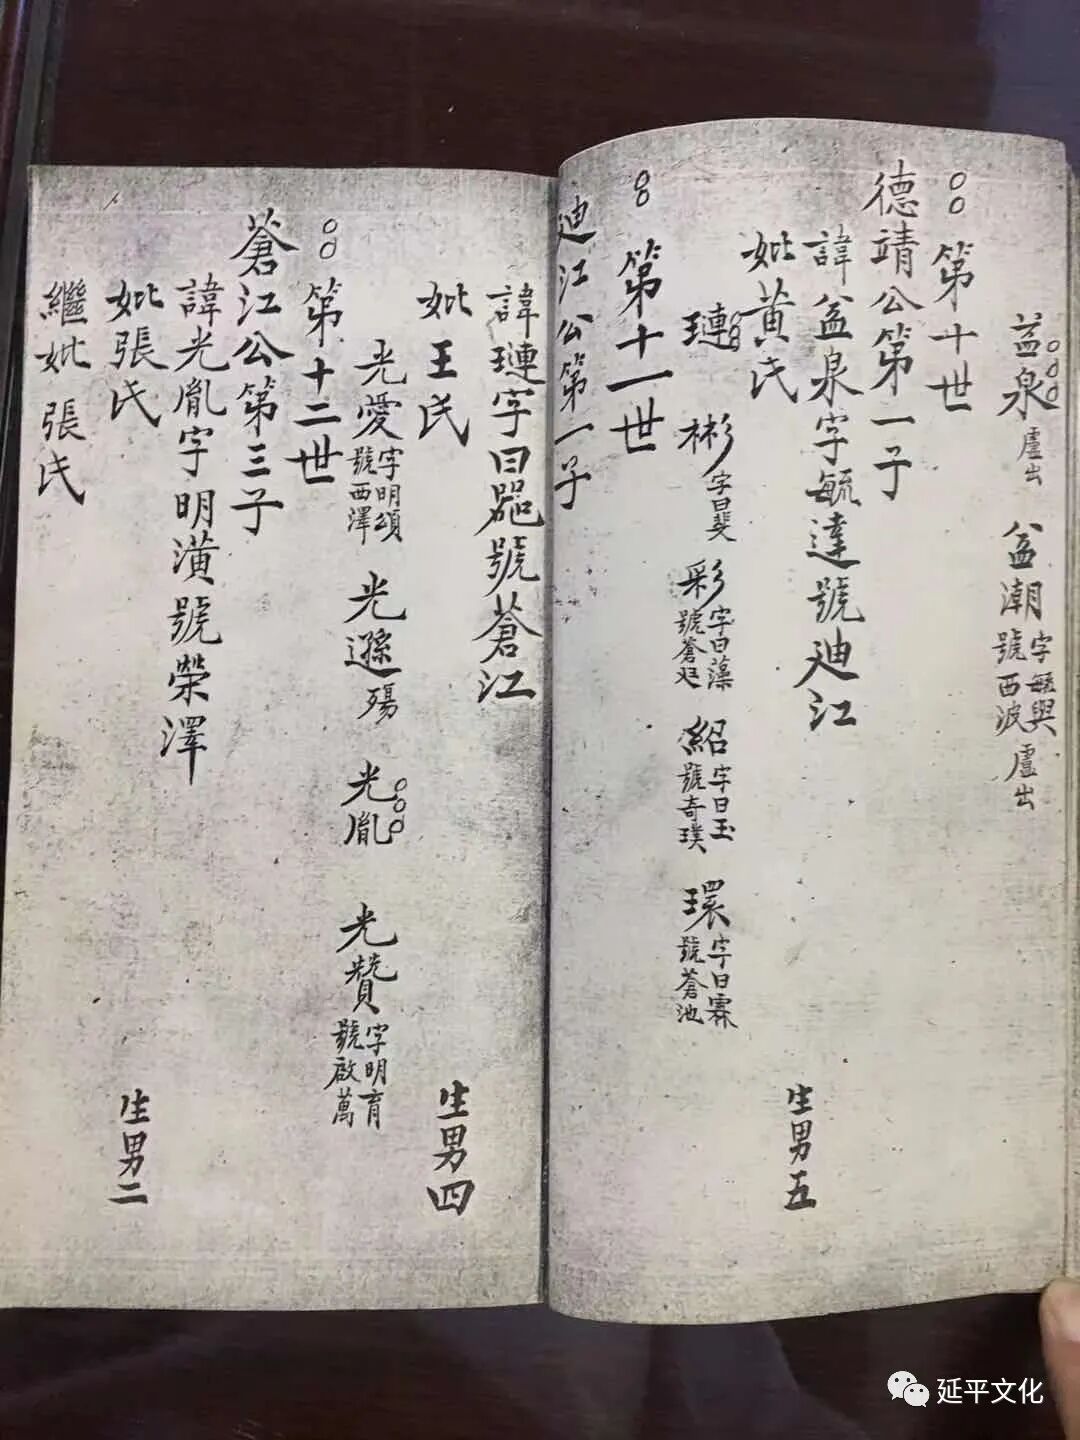 益泉 盧出 益潮 字毓興 號西波 盧出
第十世
德靖公第一子
諱益泉字毓達號廸江
妣黃氏 生男五
璉 彬 字曰斐 彩 字曰藻 號蒼 紹 字曰玉 號奇璞 環 字曰霖 號蒼池
第十一世
廸江公第一子
諱璉字曰器號蒼江
妣王氏 生男四
光愛 字明頌 號西澤 光遜 殤 光胤 光贊 字明育 號啟萬
第十二世
蒼江公第三子
諱光胤字明潢號榮澤
妣張氏 生男二
繼妣張氏
延平文化